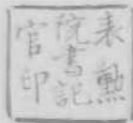 表勲
院書記
官印